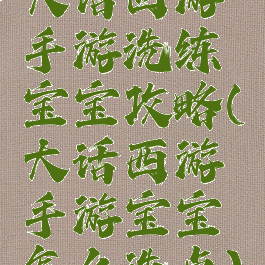 大话西游
手游洗练
宝宝攻略(
大话西游
手游宝宝
怎么洗点)